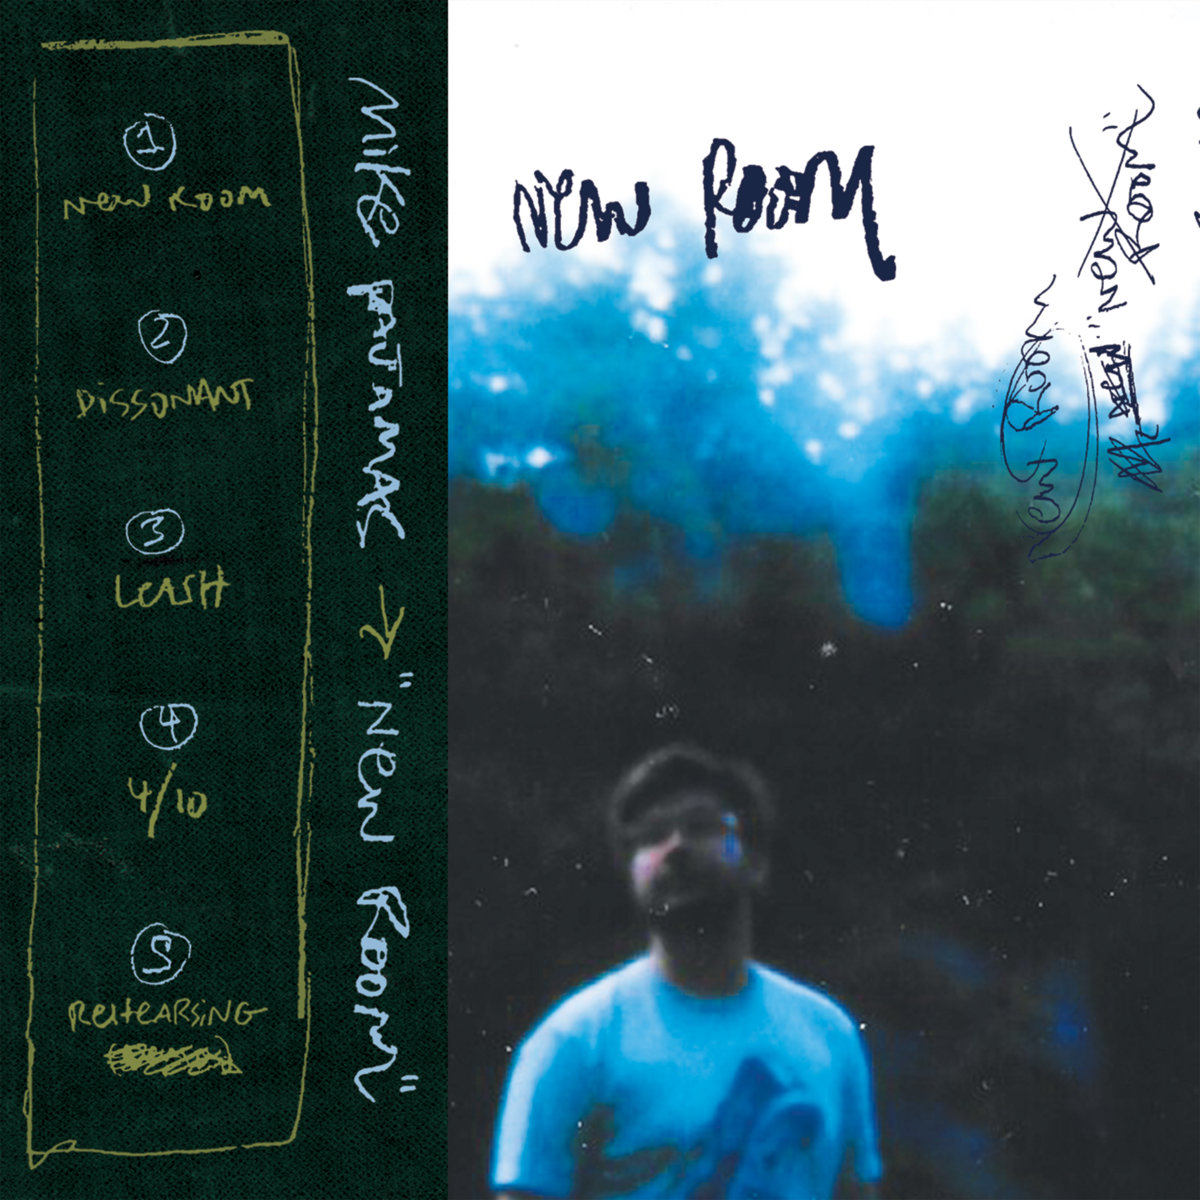 1
NEW ROOM
2
DISSONANT
3
LEASH
4
4/10
5
REHEARSING
MIKE PATAMAC → "NEW ROOM"
NEW ROOM
"NEW ROOM"
NEW ROOM